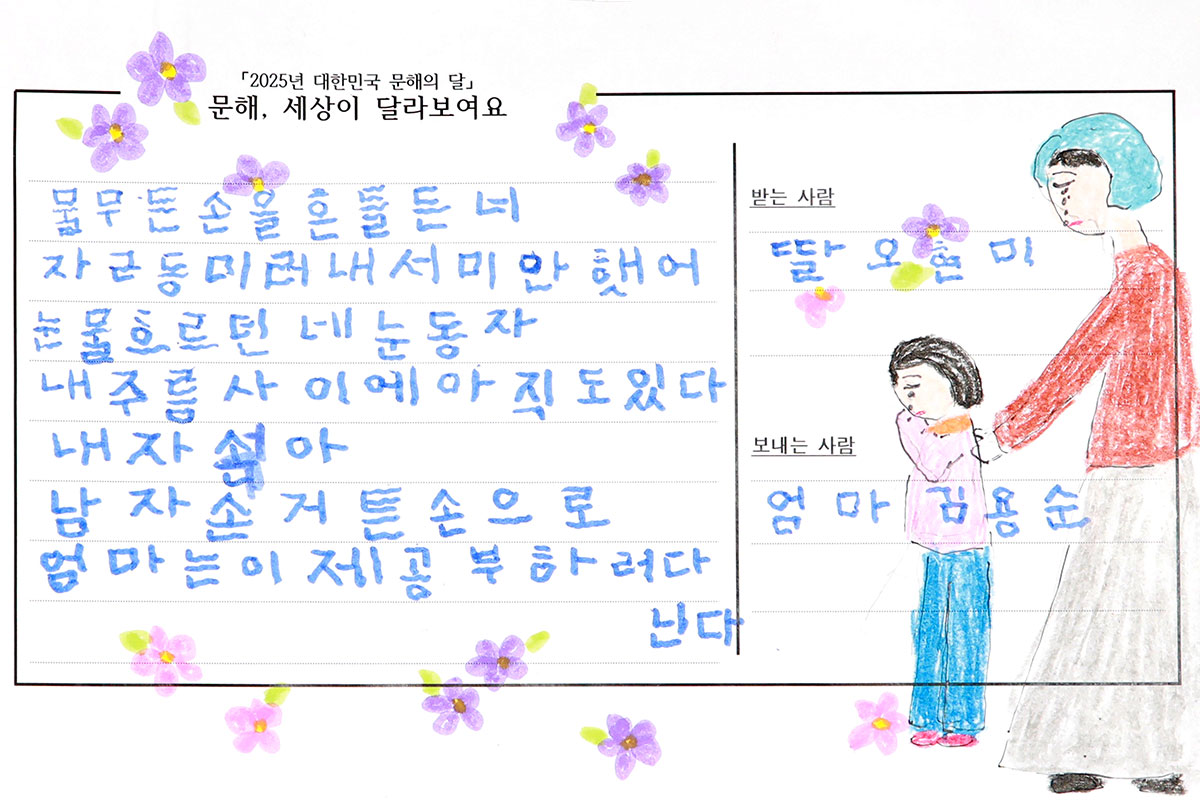 「2025년 대한민국 문해의 달」
문해, 세상이 달라보여요
물무튼손을흔들든 너
자근동미러내서미안햇어
눈물흐르던 네눈동자
내주름사이에아직도있다
내자손아
남자손거튼손으로
엄마는이제공부하러다
난다
받는 사람
딸 오현미
보내는 사람
엄마 김용순